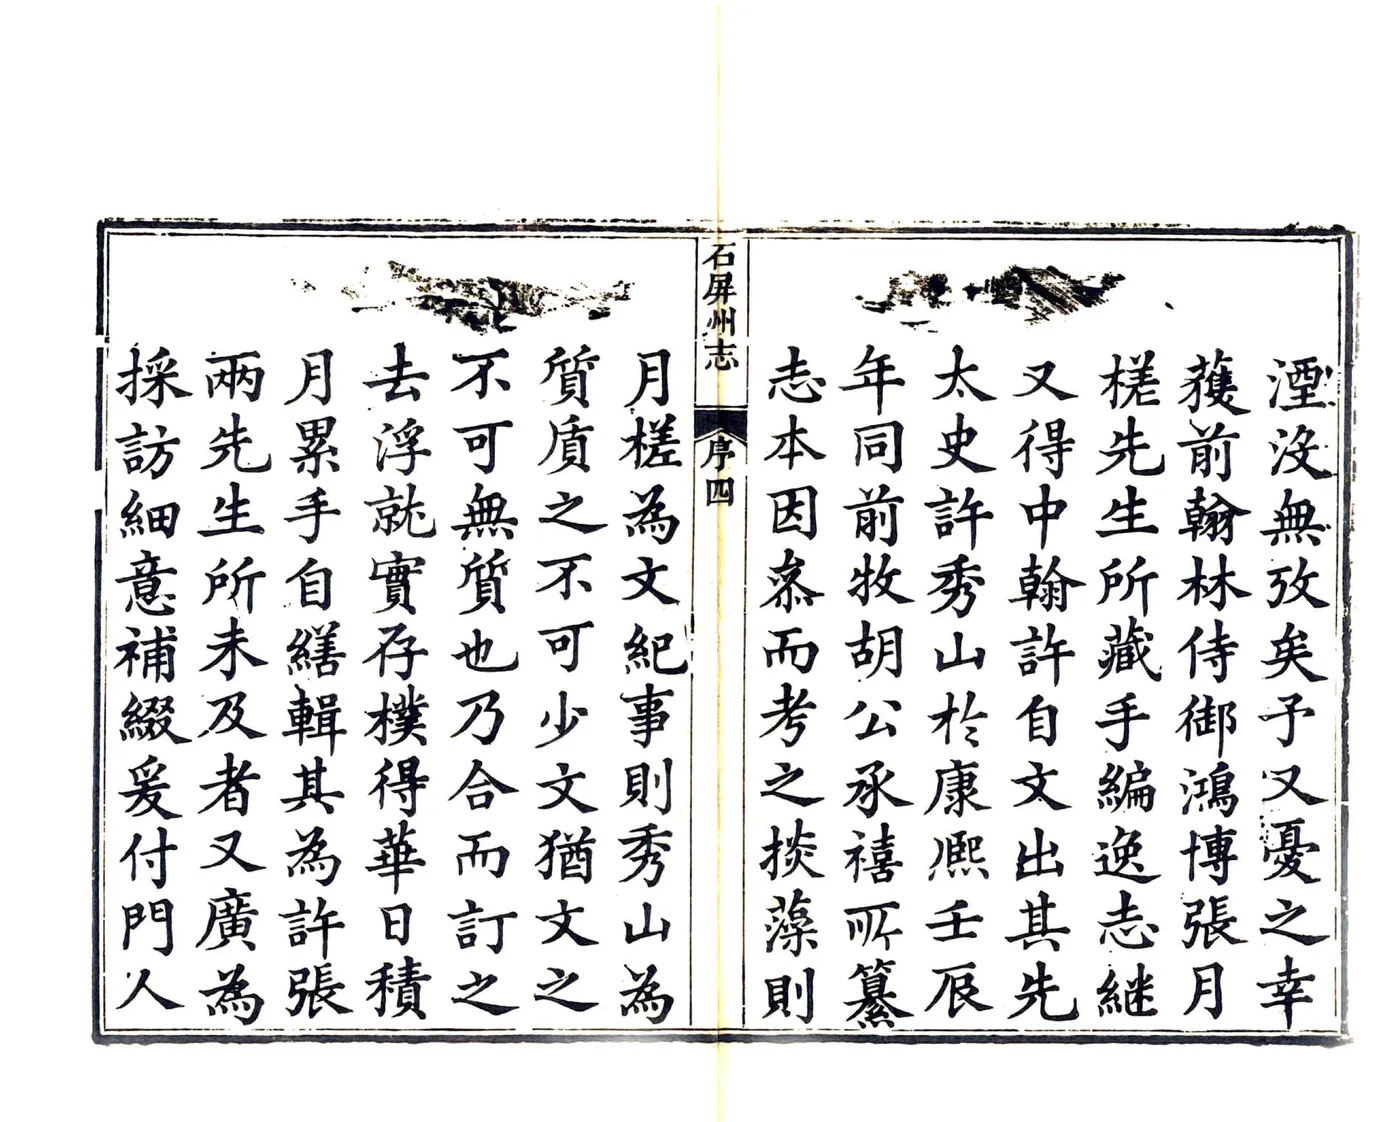 湮沒無攷矣予又憂之幸
獲前翰林侍御鴻博張月
槎先生所藏手編逸志継
又得中翰許自文出其先
太史許秀山於康熈壬辰
年同前牧胡公承禧所纂
志本因叅而考之掞藻則
石屏州志
序四
月槎為文紀事則秀山為
質質之不可少文猶文之
不可無質也乃合而訂之
去浮就實存樸得華日積
月累手自繕輯其為許張
兩先生所未及者又廣為
採訪細意補綴爰付門人